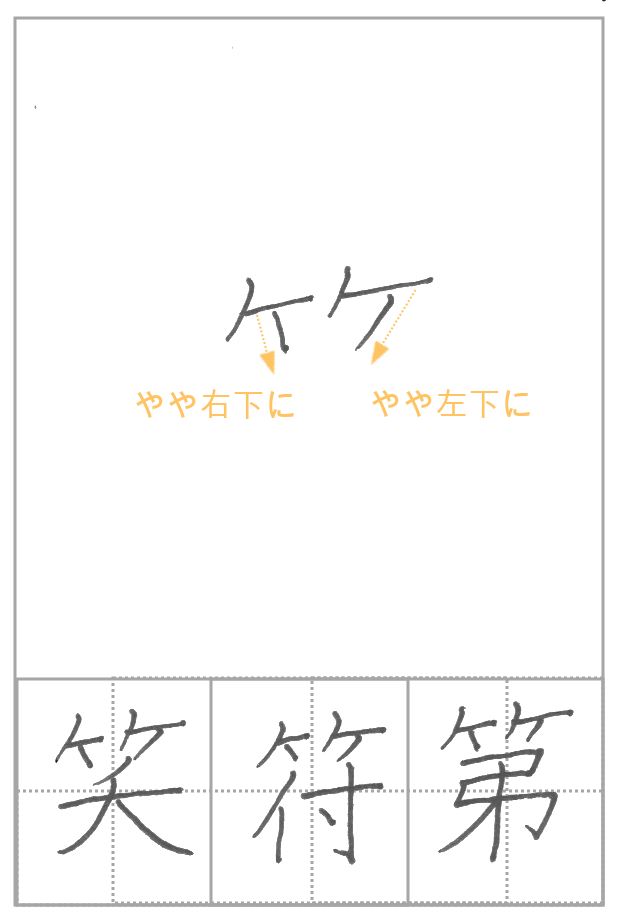 ⺮
やや右下に やや左下に
笑 符 第